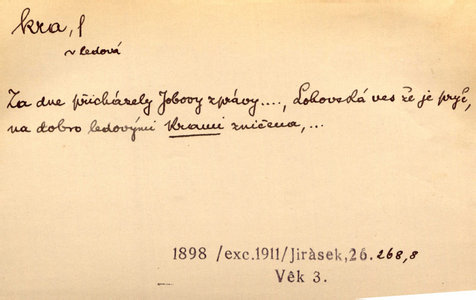 kra, f
v ledová
Za dne přicházely Jobovy zprávy...., Lobovská ves že je pryč,
na dobro ledovými krami zničena,...
1898 /exc.1911/Jiràsek,26. 268,8
Vêk 3.